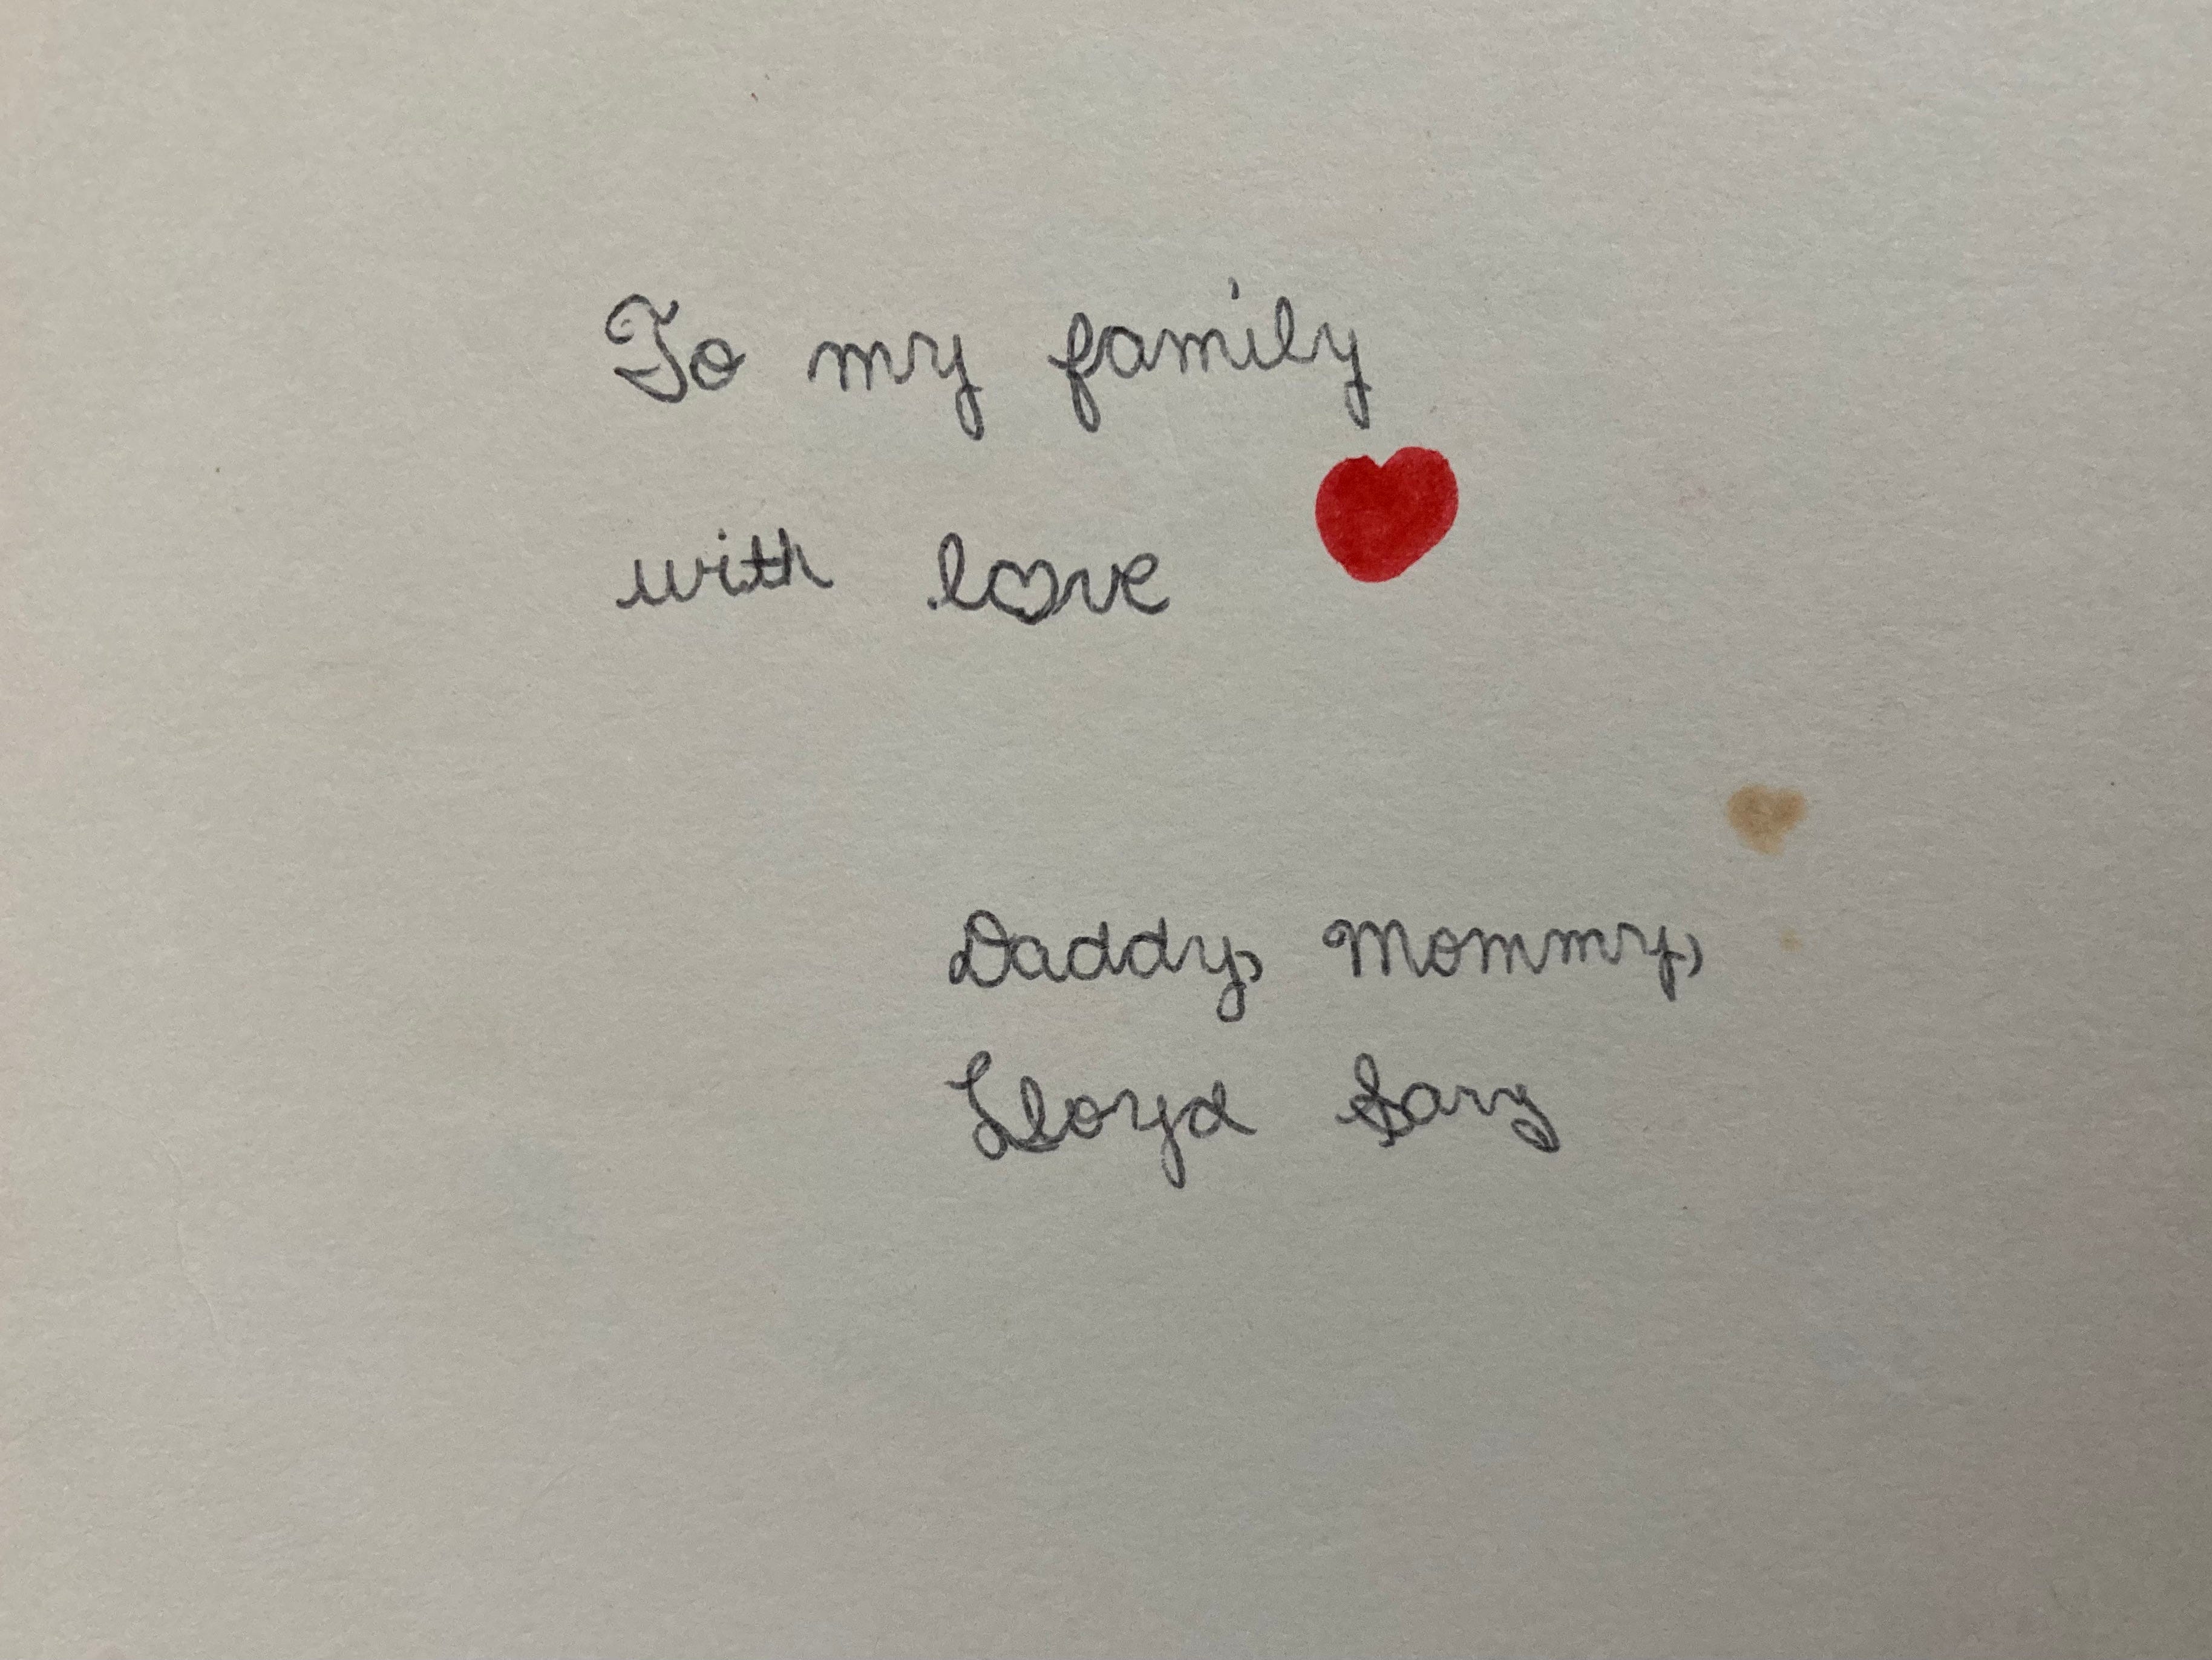 To my family
with love
Daddy, Mommy,
Lloyd